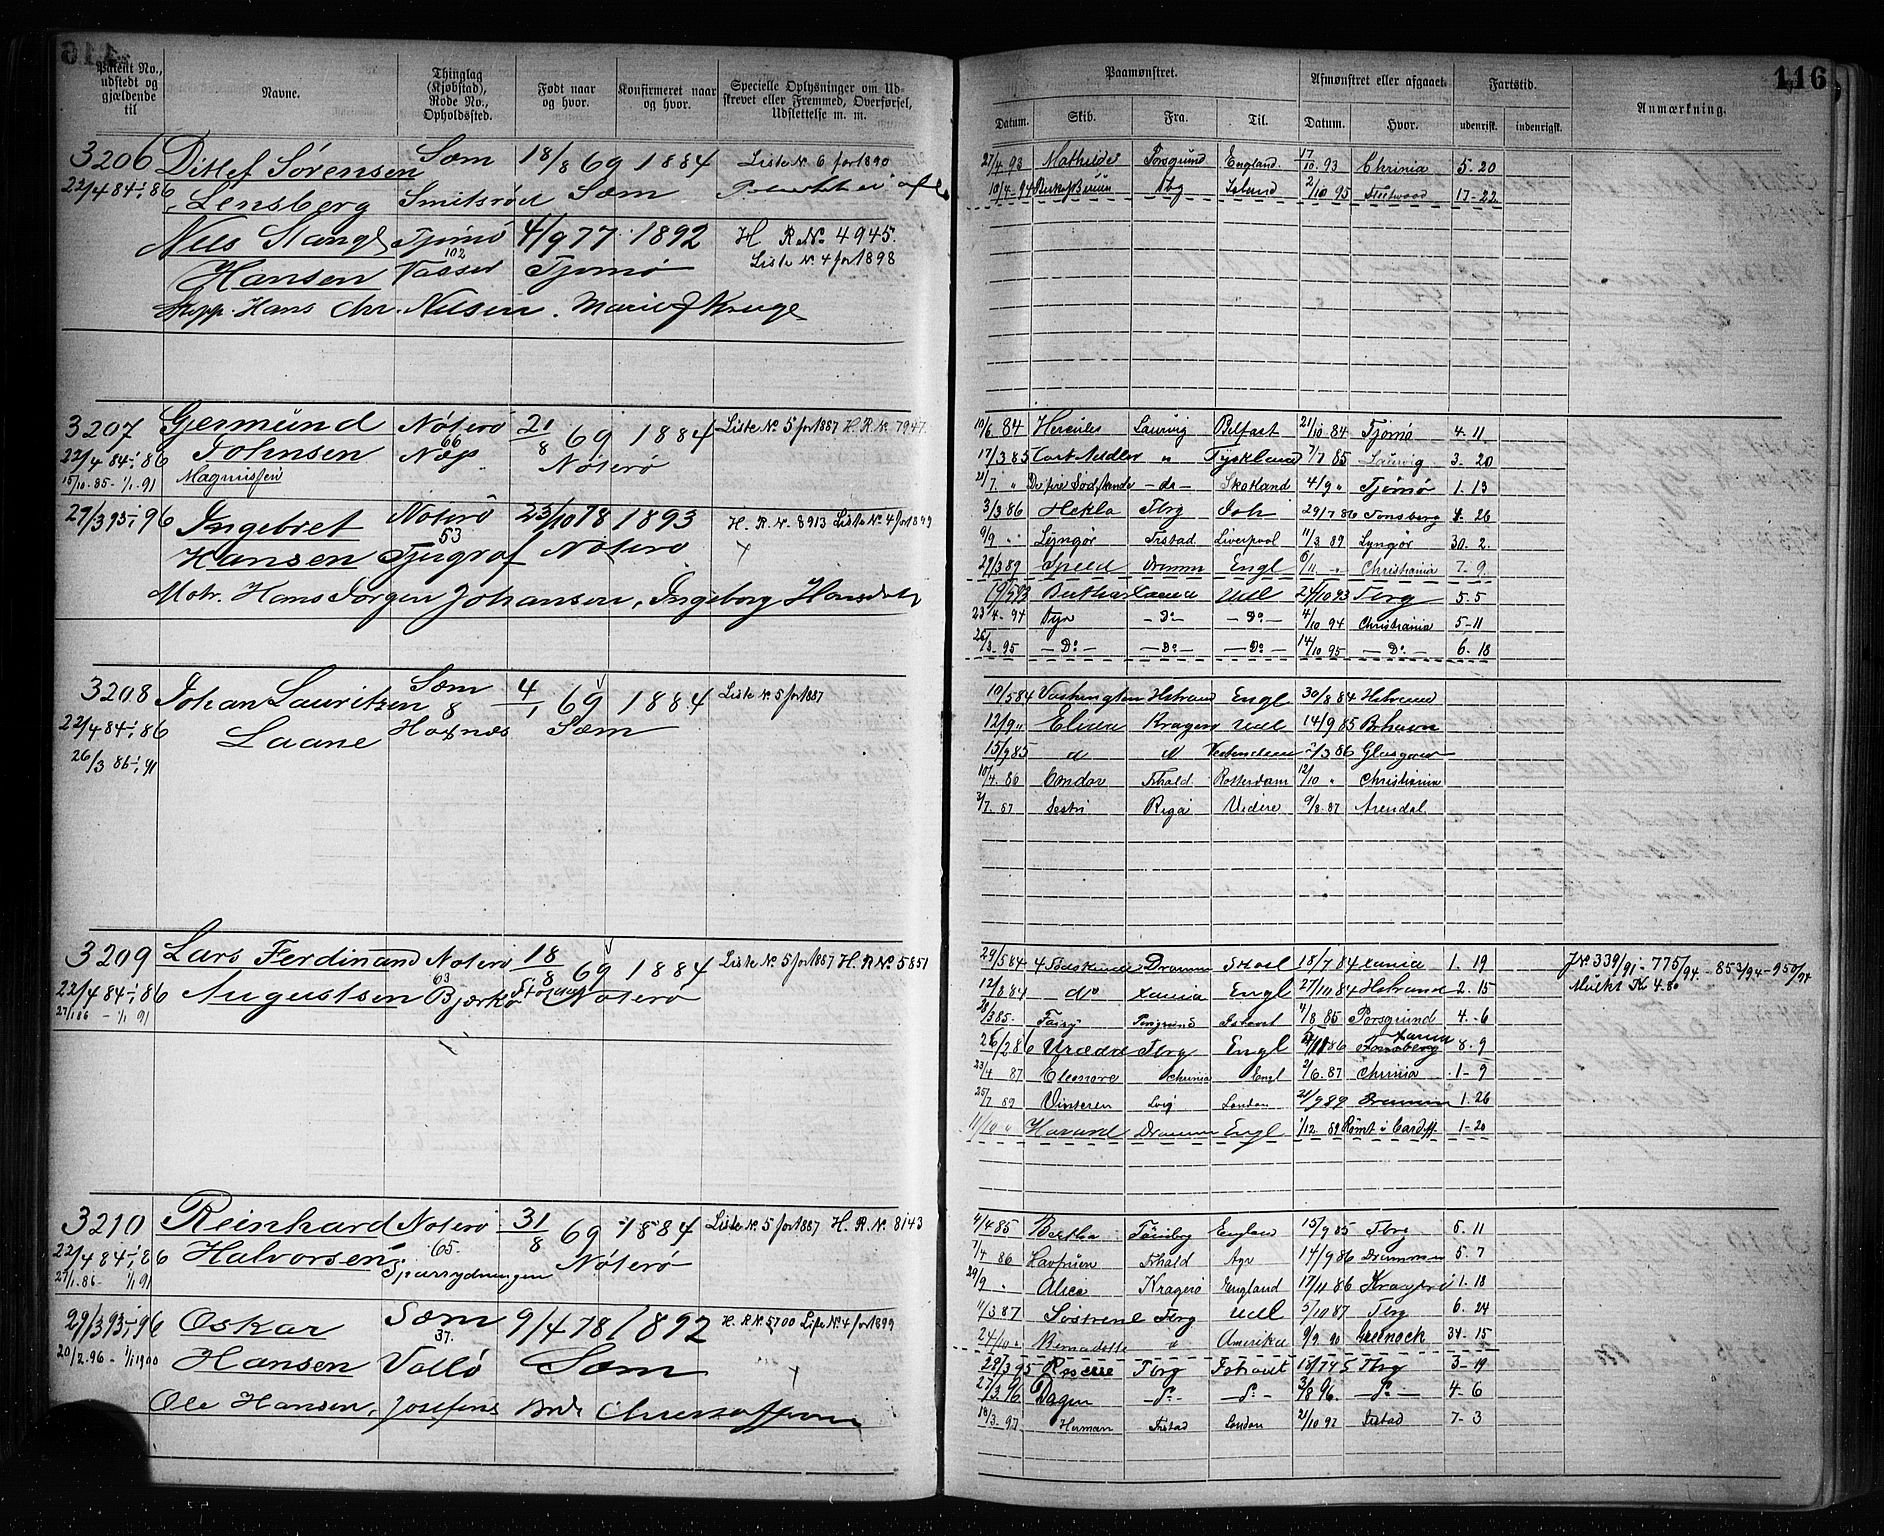 116
Patent No., udstedt og gjældende til
Navne.
Thinglag (Kjøbstad), Rode No., Opholdssted.
Født naar og hvor.
Konfirmeret naar og hvor.
Specielle Oplysninger om Udskrevet eller Fremmed, Overførsel, Udslettelse m. m.
Paamønstret.
Afmønstret eller afgaaet.
Fartstid.
Anmærkning.
Datum. Skib. Fra. Til. Datum. Hvor. udenrigst. indenrigst.
3206 Ditlef Sørensen Sæm 18/8 69 1884 Liste N. 6 for 1890
22/4 84-1/1 86 Lensberg Smitsrød Sæm
Nels Stangl Tjømø 4/9 77 1892 H R No. 4945.
Hansen 102 Vasser Tjømø Liste N. 4 for 1898
Hans Chr. Nelsen.
27/4 93 Mathilde Porsgrund England 17/10 93 Chrinia 5-20
10/4-94 Tbg Island 2/10 95 Fleetwood 17-22
3207 Gjermund Nøterø 21/8 69 1884 Liste N. 5 for 1887 H. R. N. 7947.
22/4 84-1/1 86 Johnsen 66 Næs Nøterø
15/10. 85-1/1. 91 Magnussen
27/3 95-1/1 96 Ingebret Nøterø 23/10 78 1893 H. R. N. 8913 Liste N. 4 for 1899
Hansen 53 Tjugraf Nøterø
Motr. Hans Jørgen Johansen, Ingeborg Hansdat
10/6 84 Hercules Laurvig Belfast 21/10 84 Tjømø 4. 11
17/3 85 " Tyskland 7/7 85 Laurvig 3. 20
21/7 " De fire Sødskende - do - Skotland 4/9 " Tjømø 1. 13
3/3 86 Hekla Tbrg 29/7 86 Tonsberg 4. 26
9/9 " Lyngør Frstad Liverpool 11/3 89 Lyngør 30. 2.
29/3 89 Speed Dramm Engl 6/11 " Christiania 7-9.
Udl 24/10 93 Tbrg 5. 5
23/4-94 Fyr - Do - - Do - 4/10 94 Christiania 5-11
26/3 95 - Do - - Do - - Do - 14/10 95 - Do - 6. 18
3208 Johan Lauritzen Sæm 4/1 69 1884 Liste N. 5 for 1887
22/4 84-1/1 86 Laane 8 Hoxnæs Sæm
26/3 86-1/1 91
10/5 84 Vashington Hstrand Engl 30/8 84 Hstrand
12/9 " Kragerø Udl 14/9 85
15/9 85 d d 3 86 Glasgow
10/4. 86 Condor Fhald Rotterdam 12/10 " Christiania
3/7. 87 Riga Videre 9/8. 87 Arendal
3209 Lars Ferdinand Noterø 18/8 69 1884 Liste N. 5 for 1887 H. R. N. 5851
22/4 84-1/1 86 Augustsen 63 Bjerkø Nøterø
27/1 86 - 1/1 91
29/5 84 4 Sødskende Dramm 18/7 84 Xania 1. 19
J.N. 339/91 - 775/94 - 853/94 - 950/94
12/8 84 do Xania Engl 27/10 84 Hstrand 2. 15
Mulkt K 4. 80
28/3 85 Fairy Porsgrund Ishavet 4/8 85 Porsgrund 4. - 6
26/2 86 Urædd Tbrg Engl 86 Tonsberg Xania 8. 9
23/4 87 Eleonore Chrinia Engl 2/6. 87 Chrinia 1 - 9
25/7 89 Vinteren Lvig London 21/9 89 Dramm 1. 26
11/10 " Havard Dramm Engl 1/12 89 Rømt i Cardiff 1-20
3210 Reinhard Noterø 31/8 69 1884 Liste N. 5 for 1887 H. R. N. 8143
22/4 84-1/1 86 Halvorsen 65. Nøterø
27/1. 86 - 1/1 91
29/3 93-1/1 96 Oskar Sæm 9/4 78 1892 H. R. N. 5700 Liste N. 4 for 1899
20/2. 96 - 1/1 1900 Hansen 37. Vallø Sæm
Ole Hansen, Josefine
4/4 85 Bertha Tønsberg England 15/9 85 Tbrg 5. 11
7/4 86 Havfruen Fhald Ayr 14/9 86 Drammen 5. 7
29/9 " Alice Kragerø England 17/11 86 Kragerø 1. 18
11/3 87 Søstrene Tbrg Udl 5/10 87 Tbrg 6. 24
24/10 " Bernadotte d Amerika 9/9 90 Greenock 34 - 15
28/3 95 Rescue Tbrg Ishavet 18/7 95 Tbrg 3-19
27/3. 96 Dagen - Do - - Do - 3/8 96 - Do - 4-6
18/3-97 Herman Frstad London 21/10 97 Frstad 7-3